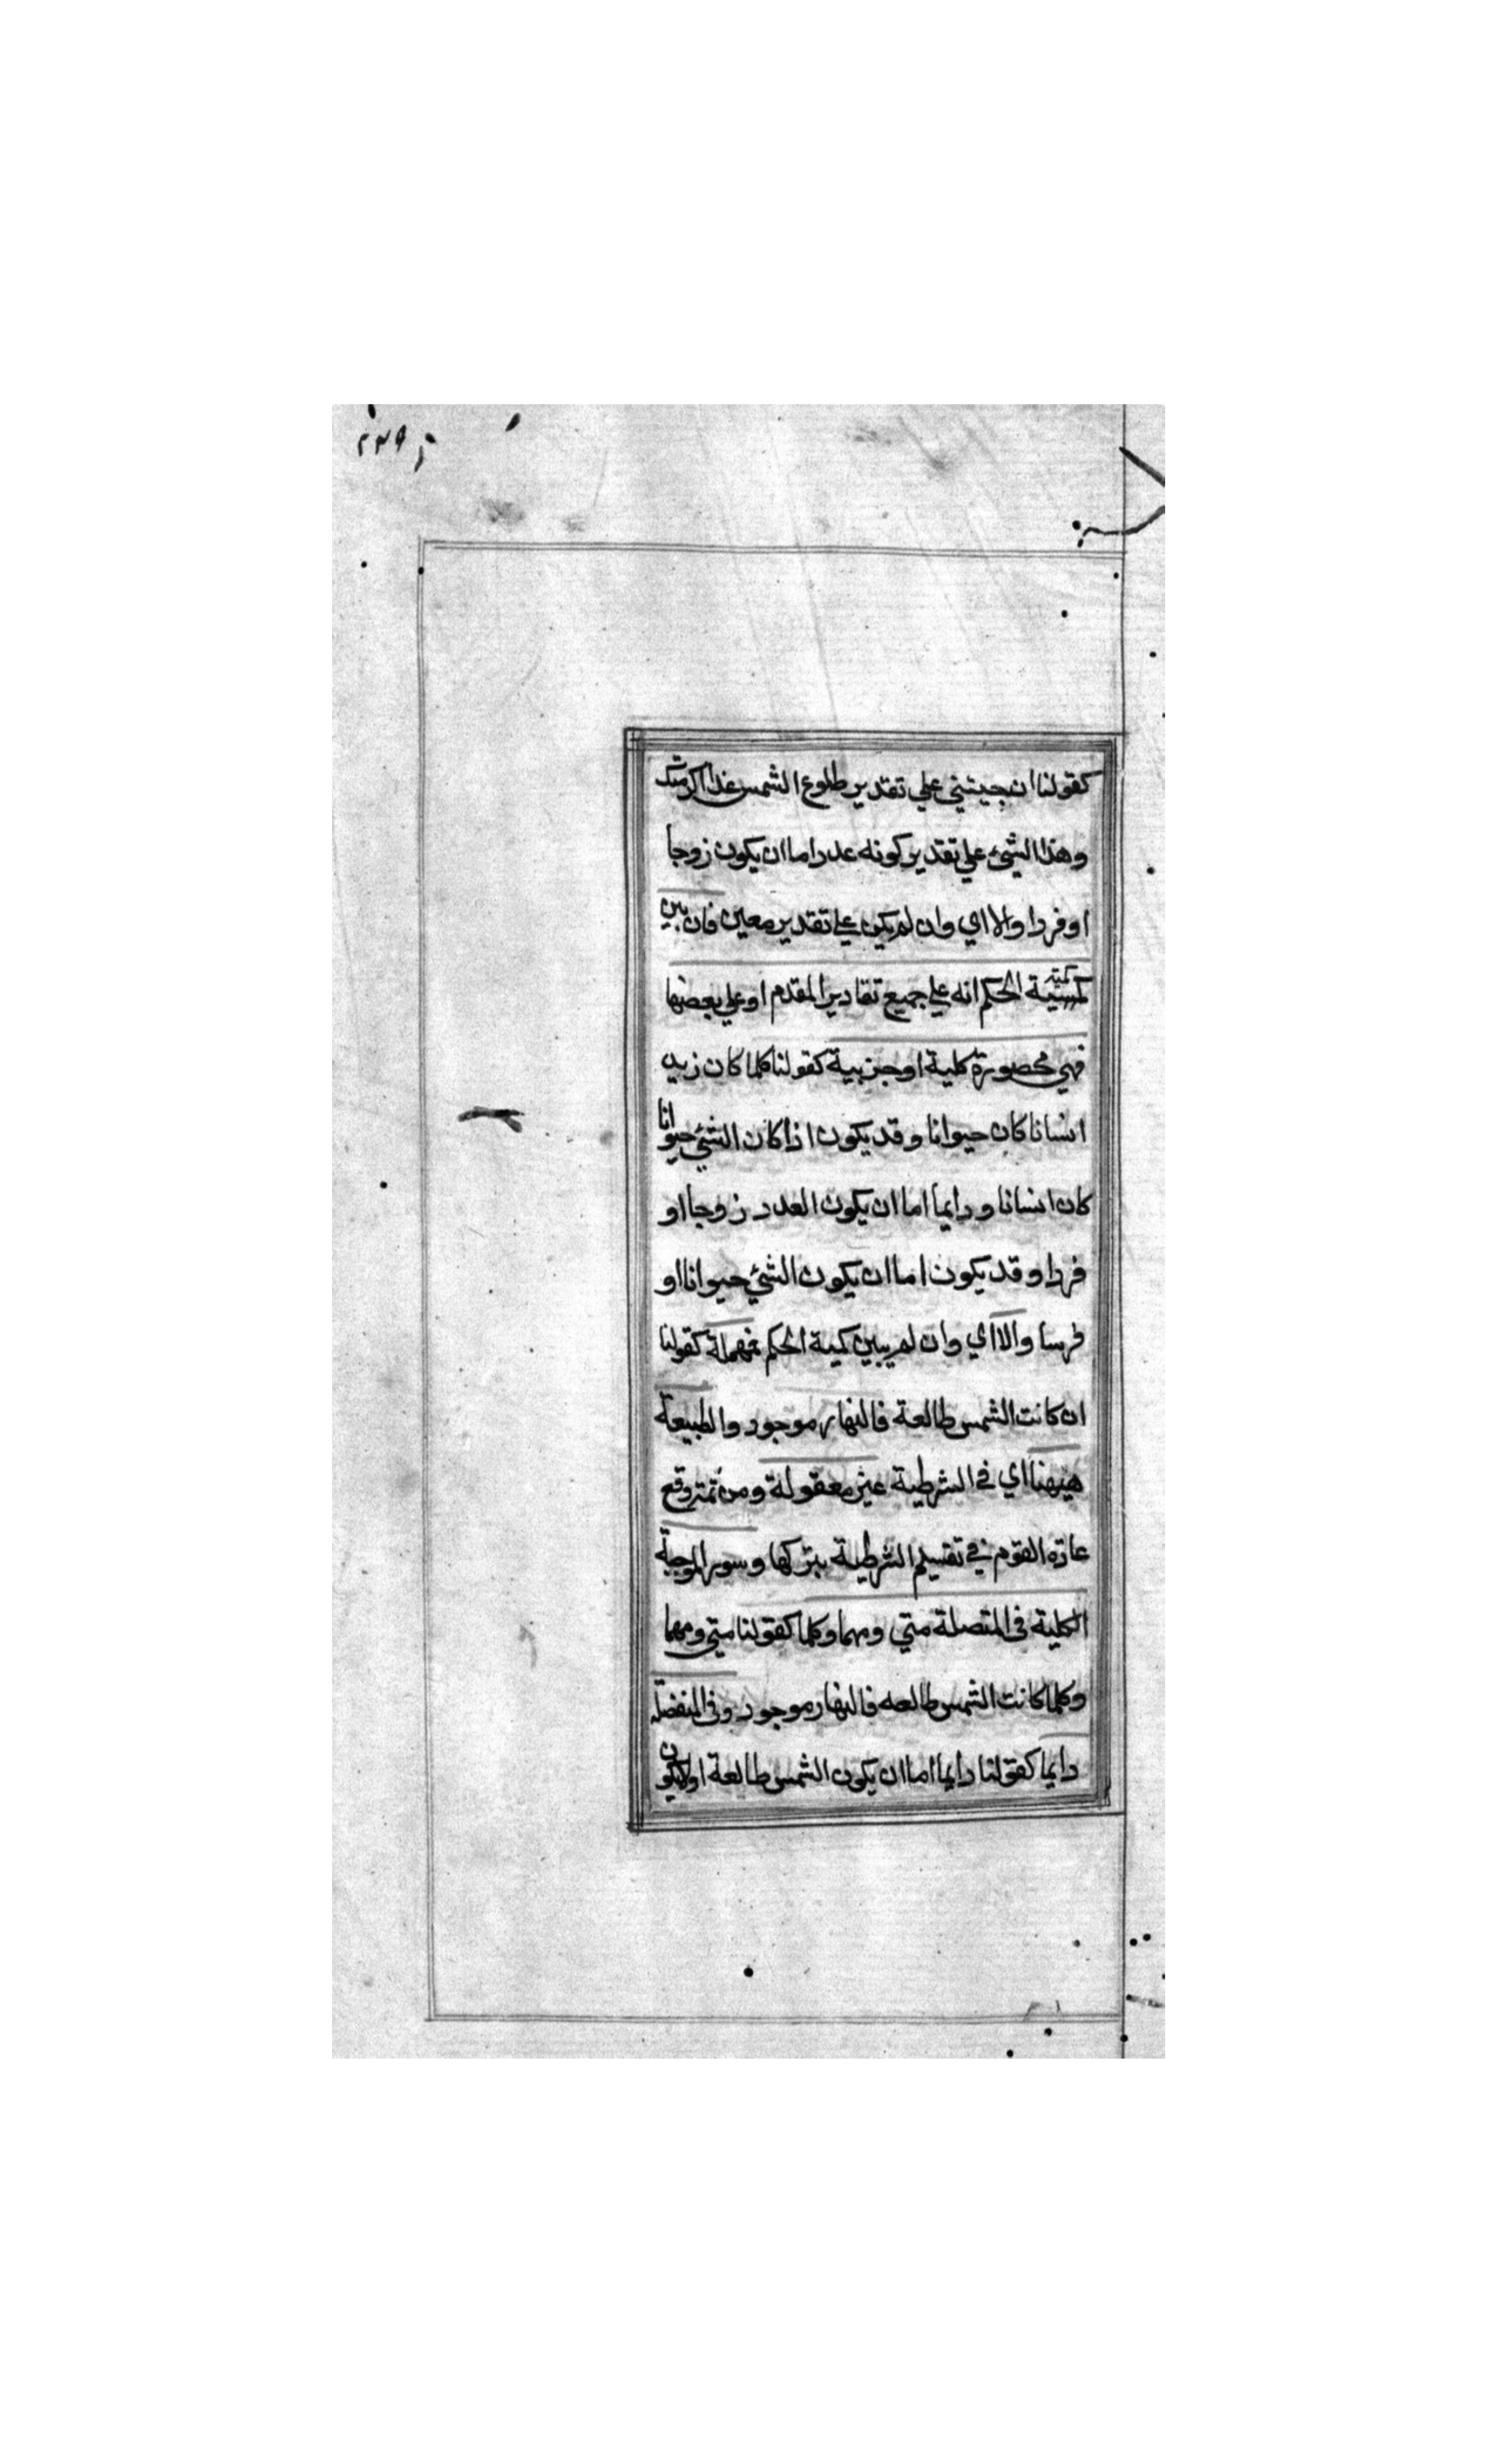 كقولنا ان جيتني علي تقدير طلوع الشمس غدا اكرمتك
وهذا الشيء علي تقدير كونه عددا اما ان يكون زوجا
او فردا والا اي وان لم يكن علي تقدير معين فان بين
كمية الحكم انه علي جميع تقادير المقدم او علي بعضها
فهي محصورة كلية او جزيية كقولنا كلما كان زيد
انسانا كان حيوانا وقد يكون اذا كان الشيء حيوانا
كان انسانا ودايما اما ان يكون العدد زوجا او
فردا وقد يكون اما ان يكون الشيء حيوانا او
فرسا والا اي وان لم يبين كمية الحكم فمهملة كقولنا
ان كانت الشمس طالعة فالنهار موجود والطبيعة
هيهنا اي في الشرطية غير معقولة ومن ثمة وقع
عادة القوم في تقسيم الشرطية بتركها وسور الموجبة
الكلية في المتصلة متي ومهما وكلما كقولنا متي ومهما
وكلما كانت الشمس طالعه فالنهار موجود وفي المنفصلة
دايما كقولنا دايما اما ان يكون الشمس طالعة او لايكون